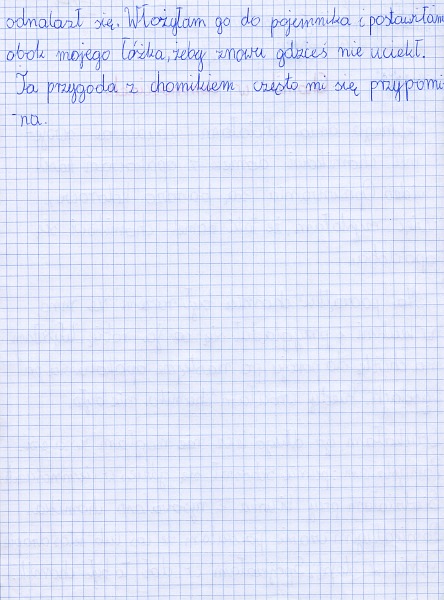 odnalazł się. Włożyłam go do pojemnika i postawiłam
obok mojego łóżka, żeby znowu gdzieś nie uciekł.
Ta przygoda z chomikiem często mi się przypomi
-na.